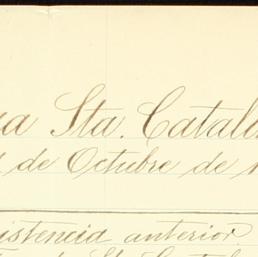 Sta. Catal
de Octubre de
istencia anterior